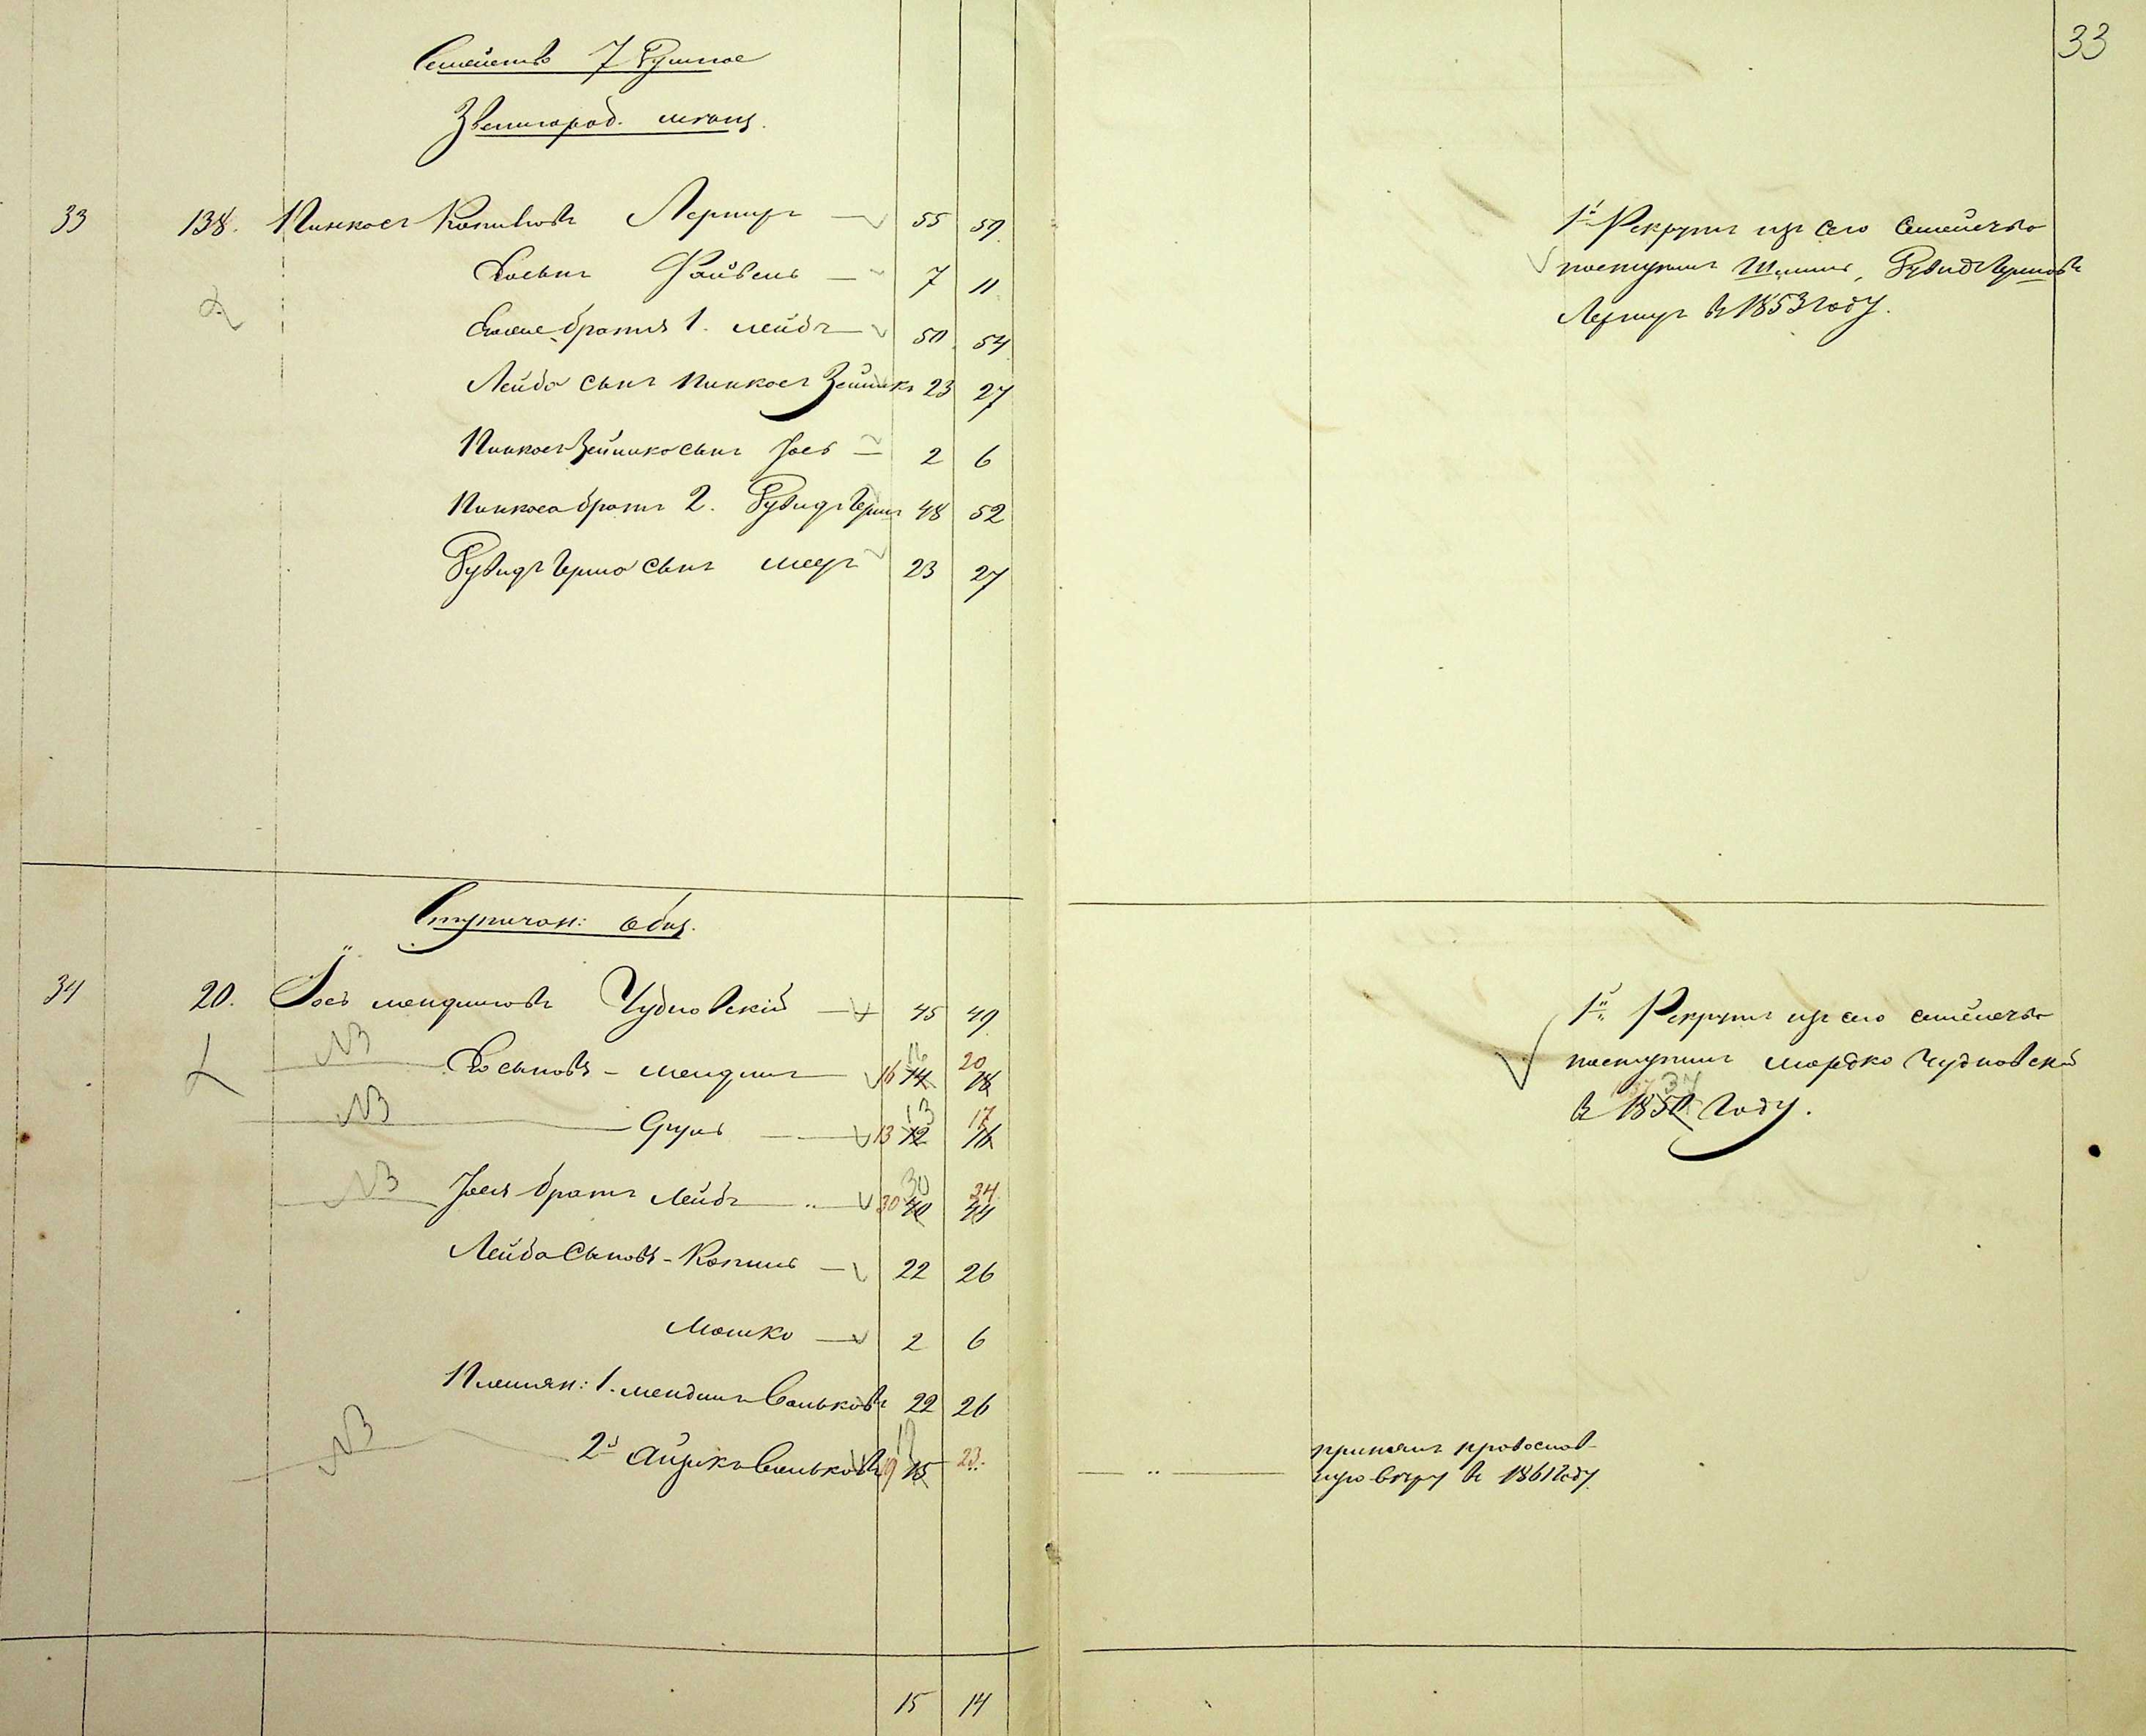 33
Семейство 7 Душное
Звенигород. мѣщ.
33 138. Пинкасъ Копиловъ Лернеръ 55 59
Его сынъ Файвель 7 11
Его же братья 1. Лейба 50 54
Лейба сынъ Пинкасъ Зейлик 23 27
Пинкасъ Зейлика сынъ Іось 2 6
Пинкаса братъ 2. Рувидъ Герш 48 52
Рувидъ Герша сынъ Меер 23 27
1й Рекрутъ изъ сего семейства
поступилъ Рувидъ Гершовъ
Лернеръ въ 1853 году.
Ступичан: общ.
34 20. Іось Мендилевъ Чудновскій 45 49
NB Его сыновья - Мендиль 16 16 14 20 18
NB Сруль 13 13 12 17 16
NB Іося братъ Лейба 30 30 40 34 44
Лейба сыновья - Копиль 22 26
Мошко 2 6
Племян: 1. Мендиль Саньковъ 22 26
NB 2й Айзикъ Саньковъ 19 19 15 23
1й Рекрутъ изъ сего семейства
поступилъ Мордко Чудновскій
37
въ 1850 году.
принялъ православ-
ную вѣру въ 1861 году
15 14